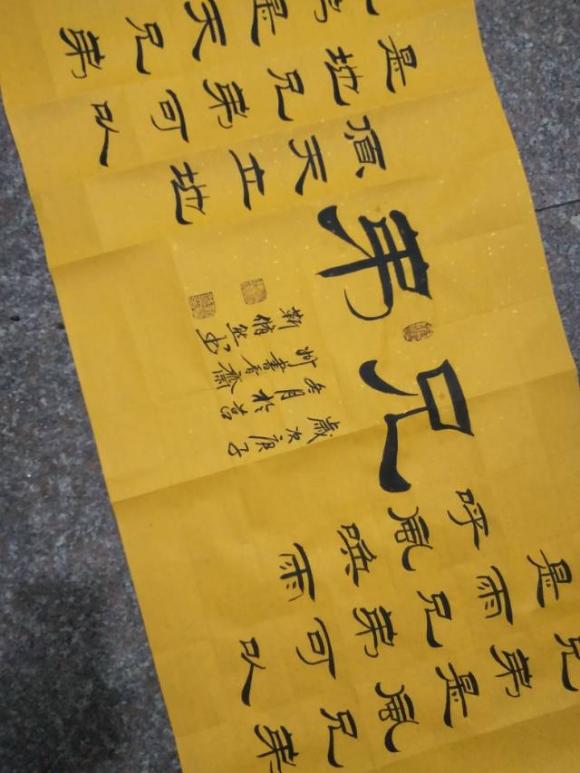 兄弟是風兄弟
是雨兄弟可以
呼風喚雨
兄弟
歲次庚子
冬月於
書香齋
靳
弟是天兄弟
是地兄弟可以
頂天立地